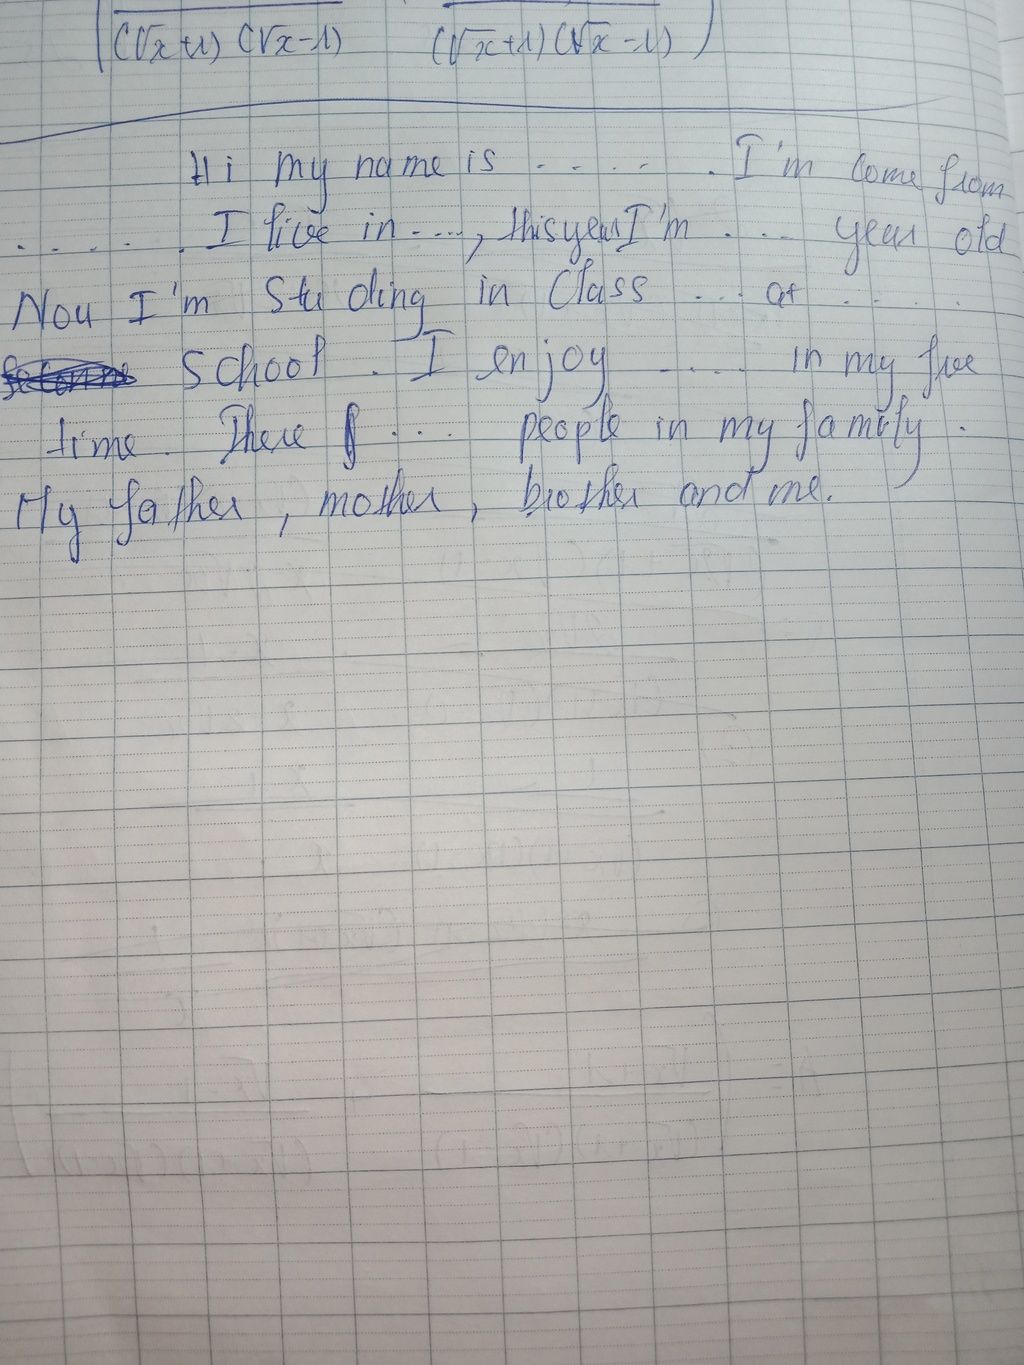 (√x+1) (√x-1) (√x+1) (√x-1)
Hi my name is ..... . I'm come from
..... . I live in ...., this year I'm .... year old
Now I'm Studing in Class ... at .....
School . I enjoy ..... in my free
time. There ... people in my family.
My father, mother, brother and me.